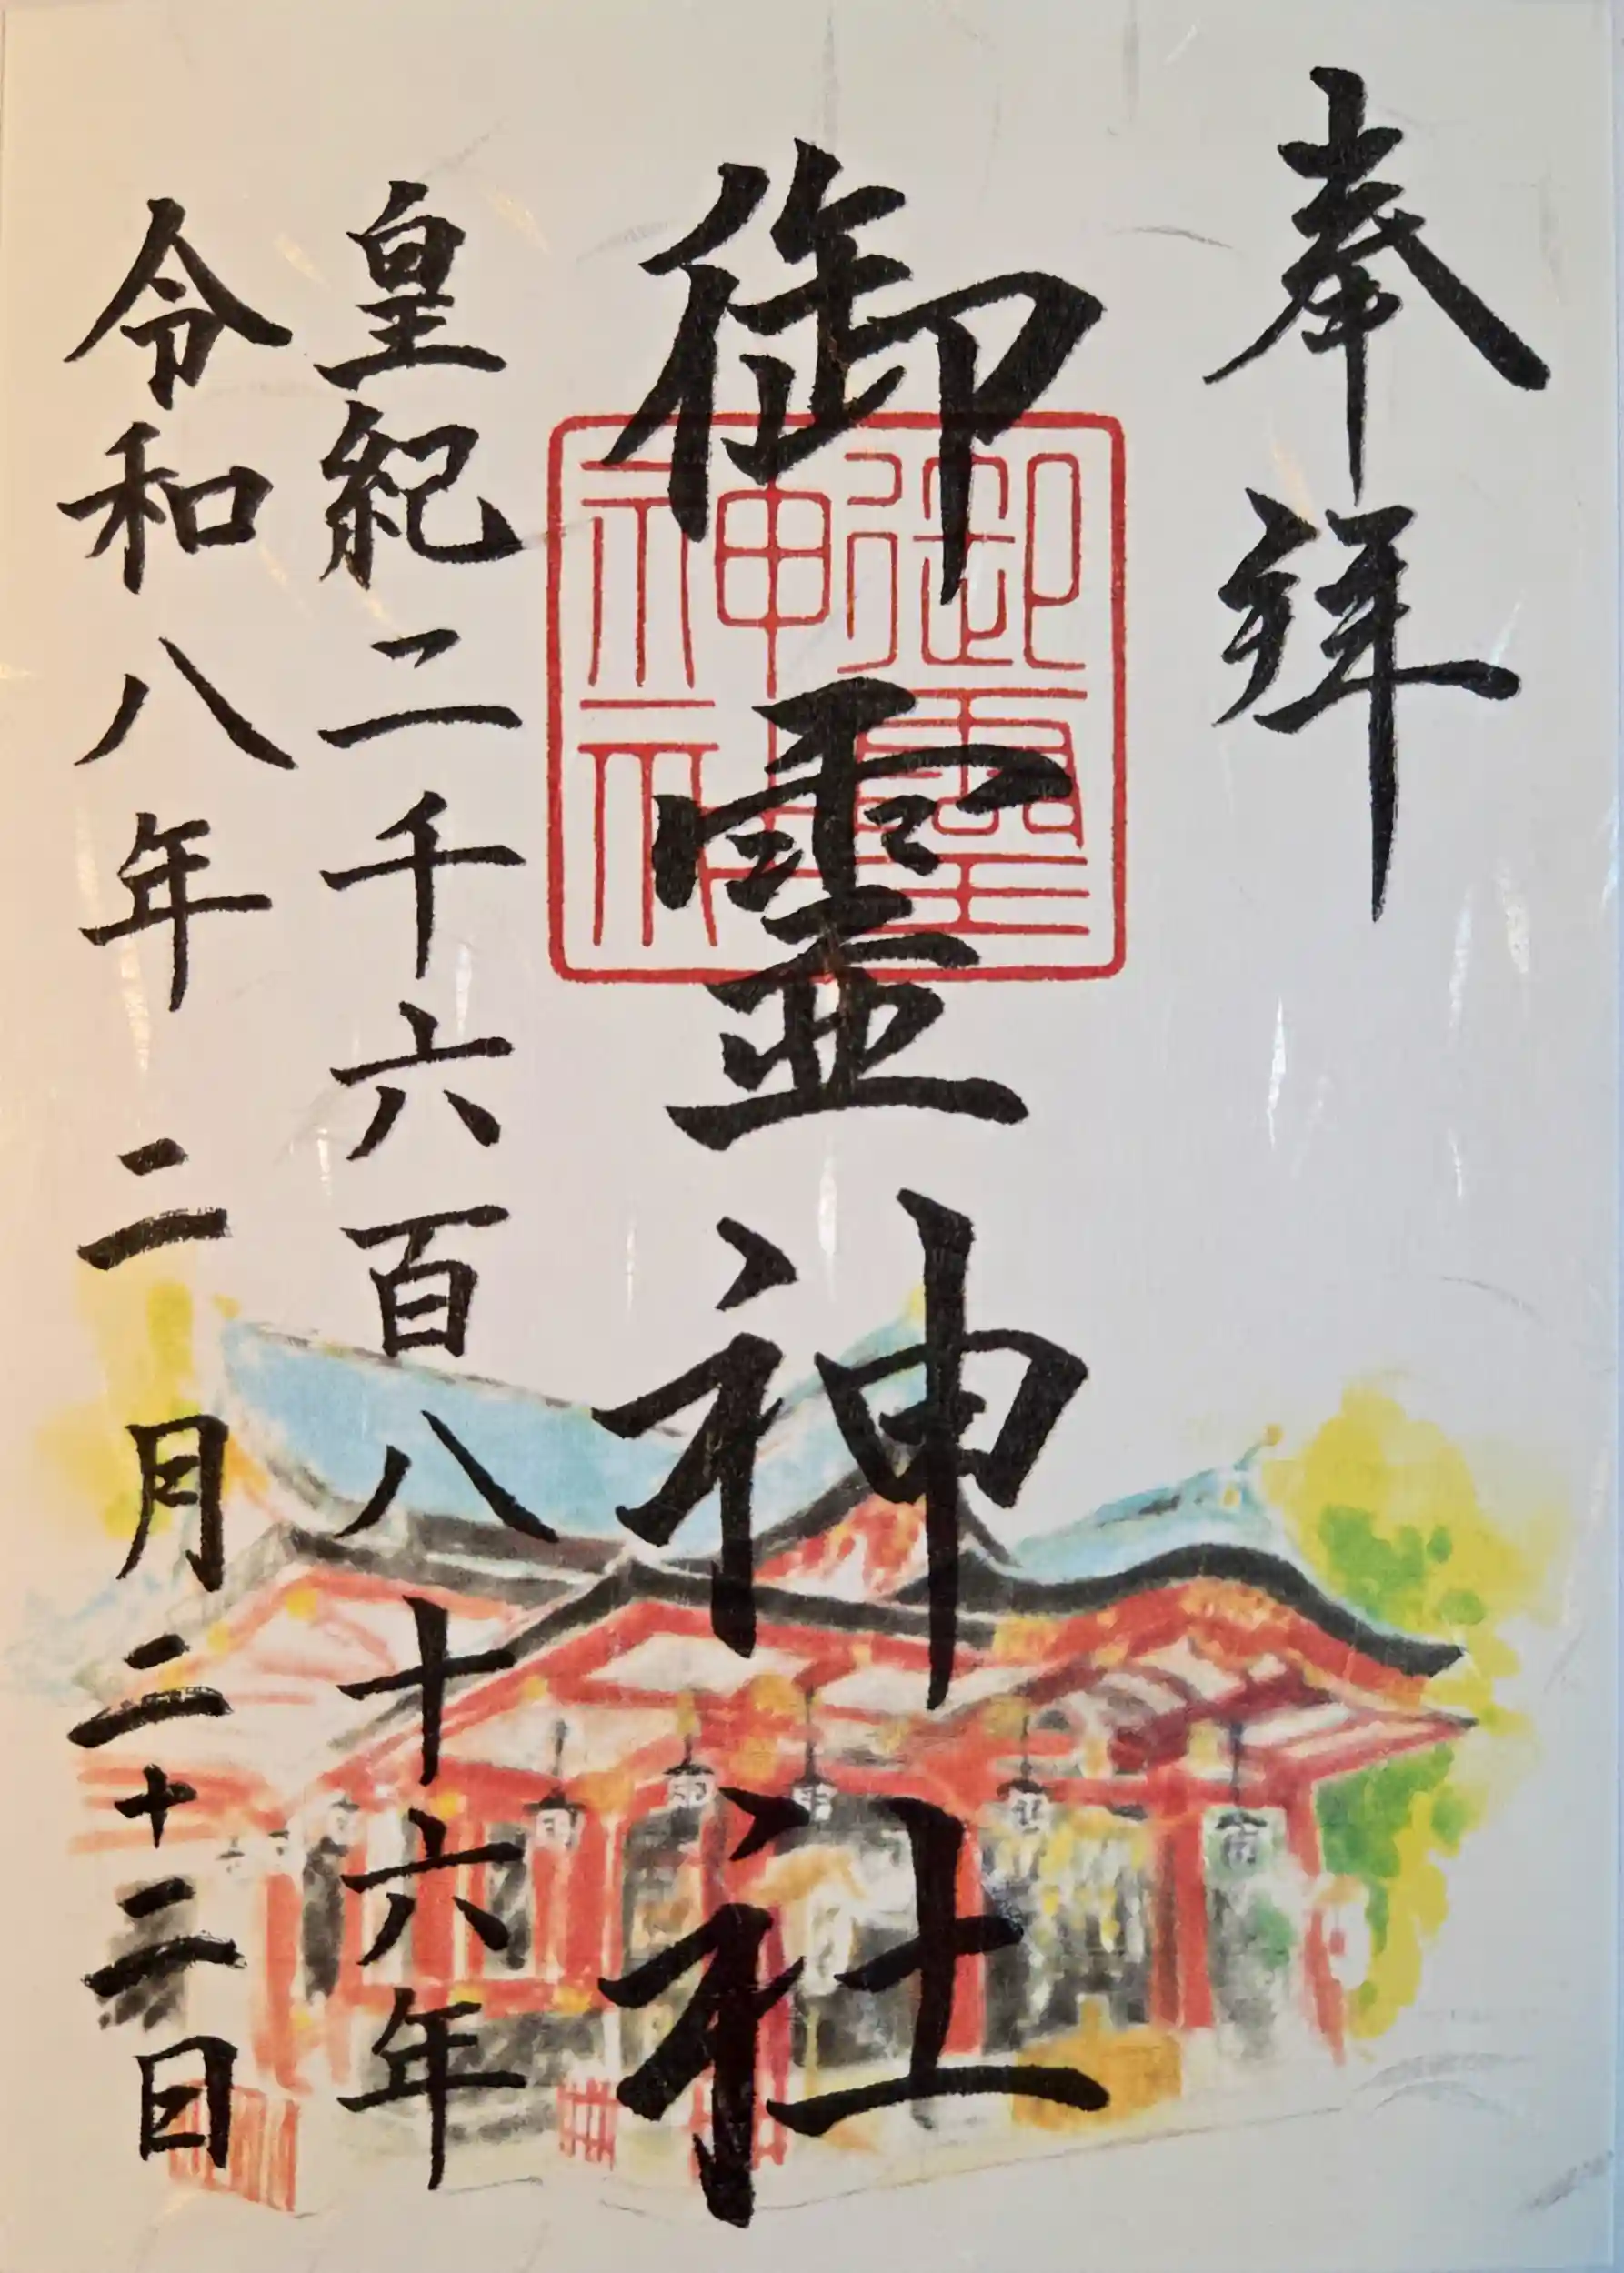 奉拝
御靈神社
御靈神社
皇紀二千六百八十六年
令和八年二月二十二日